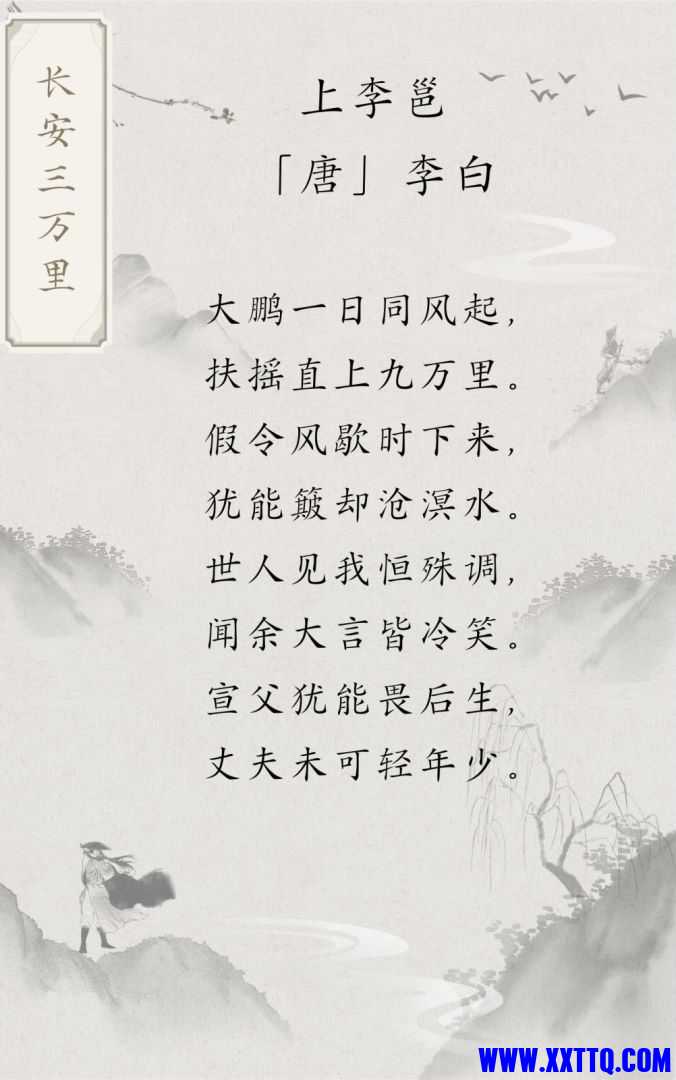 长安三万里
上李邕
「唐」李白
大鹏一日同风起，
扶摇直上九万里。
假令风歇时下来，
犹能簸却沧溟水。
世人见我恒殊调，
闻余大言皆冷笑。
宣父犹能畏后生，
丈夫未可轻年少。
WWW.XXTTQ.COM